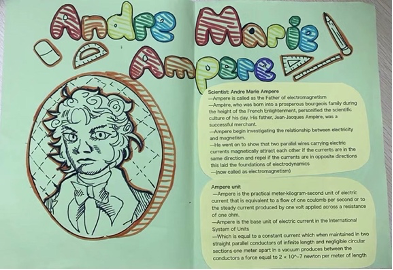 Andre Marie
Ampere
Scientist: Andre Marie Ampere
—Ampere is called as the Father of electromagnetism
—Ampère, who was born into a prosperous bourgeois family during
the height of the French Enlightenment, personified the scientific
culture of his day. His father, Jean-Jacques Ampère, was a
successful merchant.
—Ampere begin investigating the relationship between electricity
and magnetism.
—He went on to show that two parallel wires carrying electric
currents magnetically attract each other if the currents are in the
same direction and repel if the currents are in opposite directions
this laid the foundations of electrodynamics
—(now called as electromagnetism)
Ampere unit
—Ampere is the practical meter-kilogram-second unit of electric
current that is equivalent to a flow of one coulomb per second or to
the steady current produced by one volt applied across a resistance
of one ohm.
—Ampere is the base unit of electric current in the International
System of Units
—Which is equal to a constant current which when maintained in two
straight parallel conductors of infinite length and negligible circular
sections one meter apart in a vacuum produces between the
conductors a force equal to 2 × 10^-7 newton per meter of length